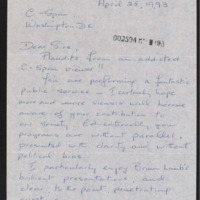 April 25, 1993
C-Span
Washington DC
Dear Sirs,
Plaudits from an addicted
C-Span viewer!!
You are performing a fantastic
public service - I certainly hope
more and more viewers will become
aware of your contribution to
our society. Educationally, your
programs are without parallel,
presented with clarity and without
political bias.
I particularly enjoy Brian Lamb's
brilliant presentations, and his
clear to the point, penetrating